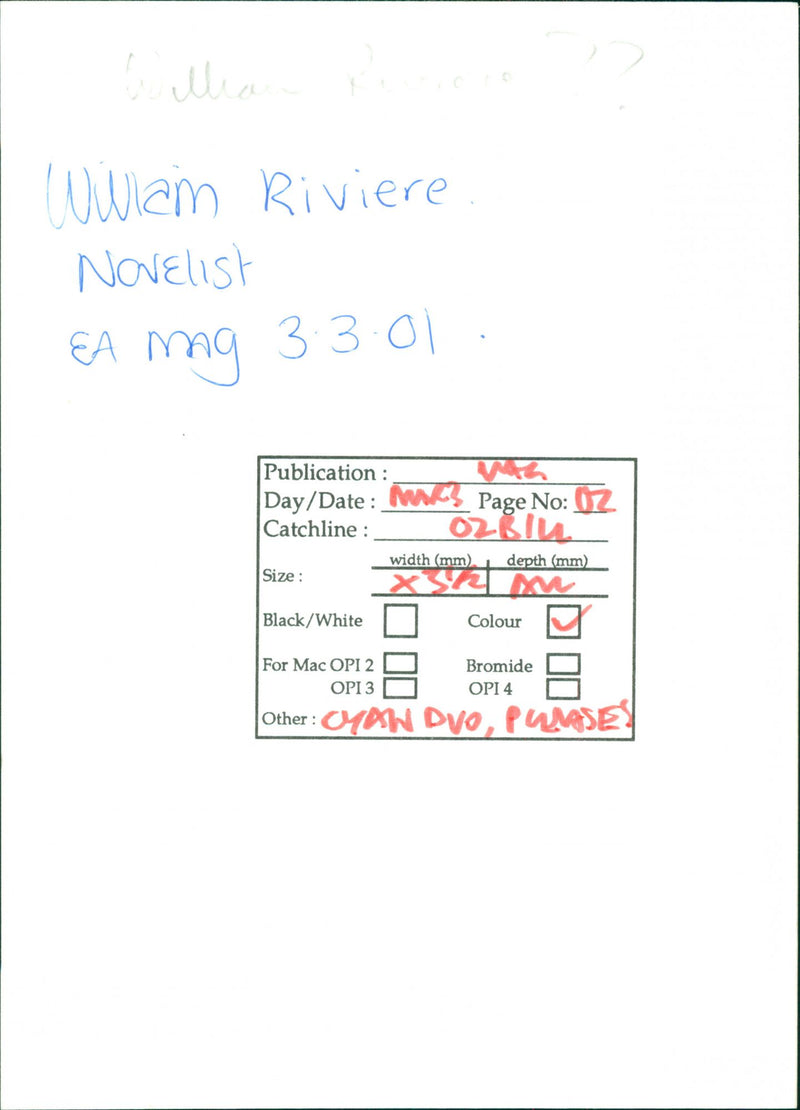 William Riviere ??
William Riviere.
Novelist
EA mag 3.3.01.
Publication : MAG
Day/Date : MAR3 Page No: 02
Catchline : 02BILL
width (mm) depth (mm)
Size :
Black/White Colour ✓
For Mac OPI 2 Bromide
OPI 3 OPI 4
Other : CYAN DUO, PLEASE!